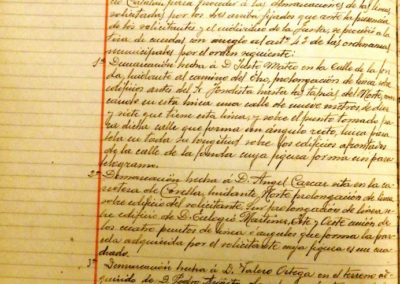 de Catalán para proceder á las demarcaciones de las líneas
solicitadas por los tres arriba fijados que ante la presencia
de los solicitantes y el individuo de la Junta, se procedió a la
tira de cuerdas con arreglo al artº 43 de las ordenanzas
municipales por el orden siguiente:
1ª Demarcación hecha á D. Justo Mateo en la Calle de la fon
da, lindante al camino del prolongación de línea sobre
edificios antes del S. Fondista hasta las tapias del Norte, mar
cando en esta línea una calle de nueve metros de diez
y siete que tiene esta línea, y sobre el punto tomado pa
ra dicha calle que forma un ángulo recto, línea para
lela en toda su longitud sobre los edificios aprontados
de la calle de la fonda cuya figura forma un para
lelogramo.
2ª Demarcación hecha á D. Angel Cascar sita en la ca
rretera de Corella, lindante Norte prolongación de línea
sobre edificio del solicitante, Sur prolongación de línea so
bre edificio de D. Eulogio Martinez, Este y Oeste unión de
los cuatro puntos de línea ó ángulos que forma la par
cela adquirida por el solicitante cuya figura es un cua
drado.
3ª Demarcación hecha á D. Valero Ortega, en el terreno ad
quirido de D. Pedro